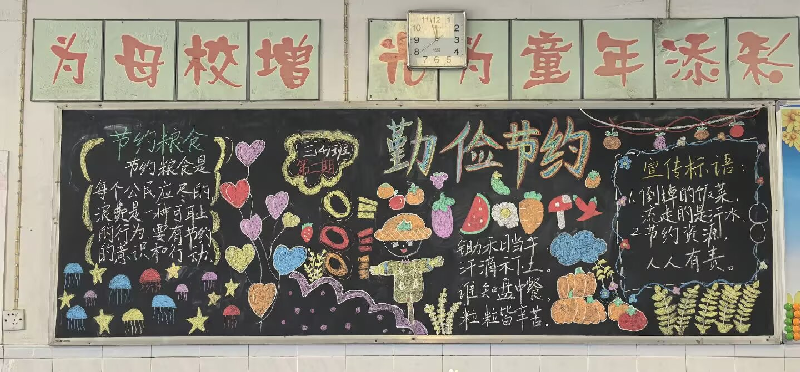 为母校增光 为童年添彩
节约粮食
节约粮食是
每个公民应尽的
浪费是一种可耻
的行为 要有节约
的意识和行动
三(4)班
第二期
勤俭节约
锄禾日当午
汗滴禾下土。
谁知盘中餐，
粒粒皆辛苦。
宣传标语:
1. 倒掉的饭菜，
流走的是汗水
2. 节约资源，
人人有责。